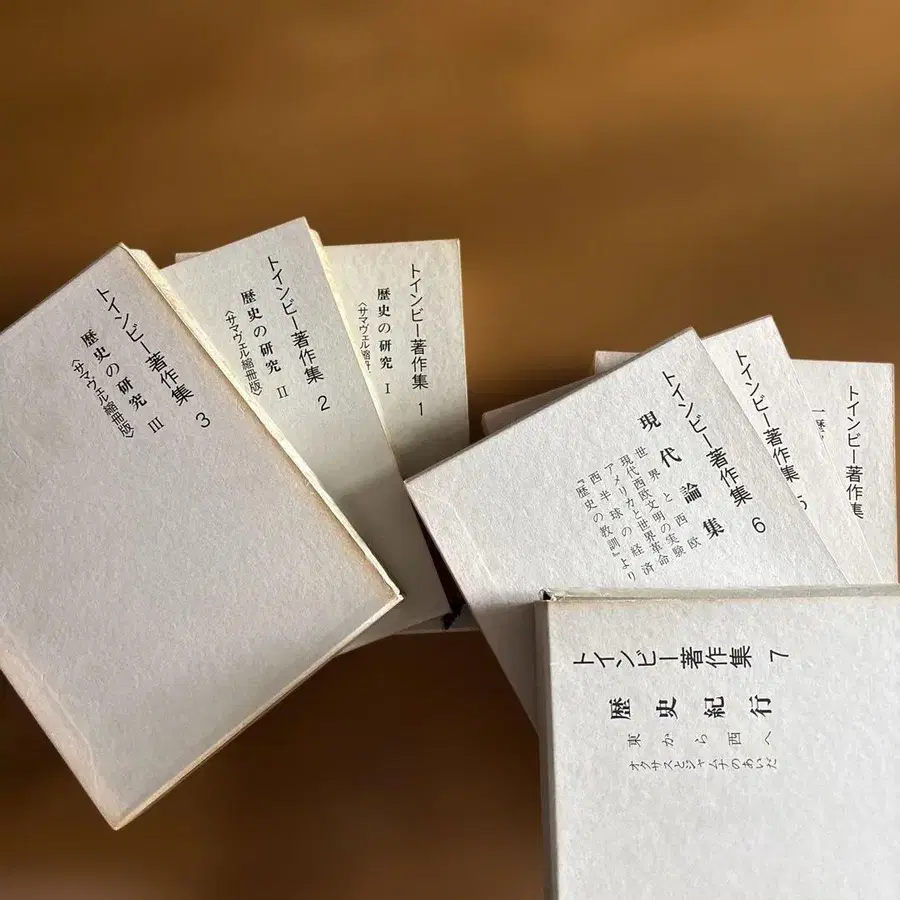 トインビー著作集 3
歴史の研究 III
〈サマヴェル縮冊版〉
トインビー著作集 2
歴史の研究 II
〈サマヴェル縮冊版〉
トインビー著作集 1
歴史の研究 I
〈サマヴェル縮冊
トインビー著作集 6
現代論集
世界と西欧
現代西欧文明の実験
アメリカと世界革命
西半球の経済
『歴史の教訓』より
トインビー著作集 5
トインビー著作集
トインビー著作集 7
歴史紀行
東から西へ
オクサスとジャムナのあいだ